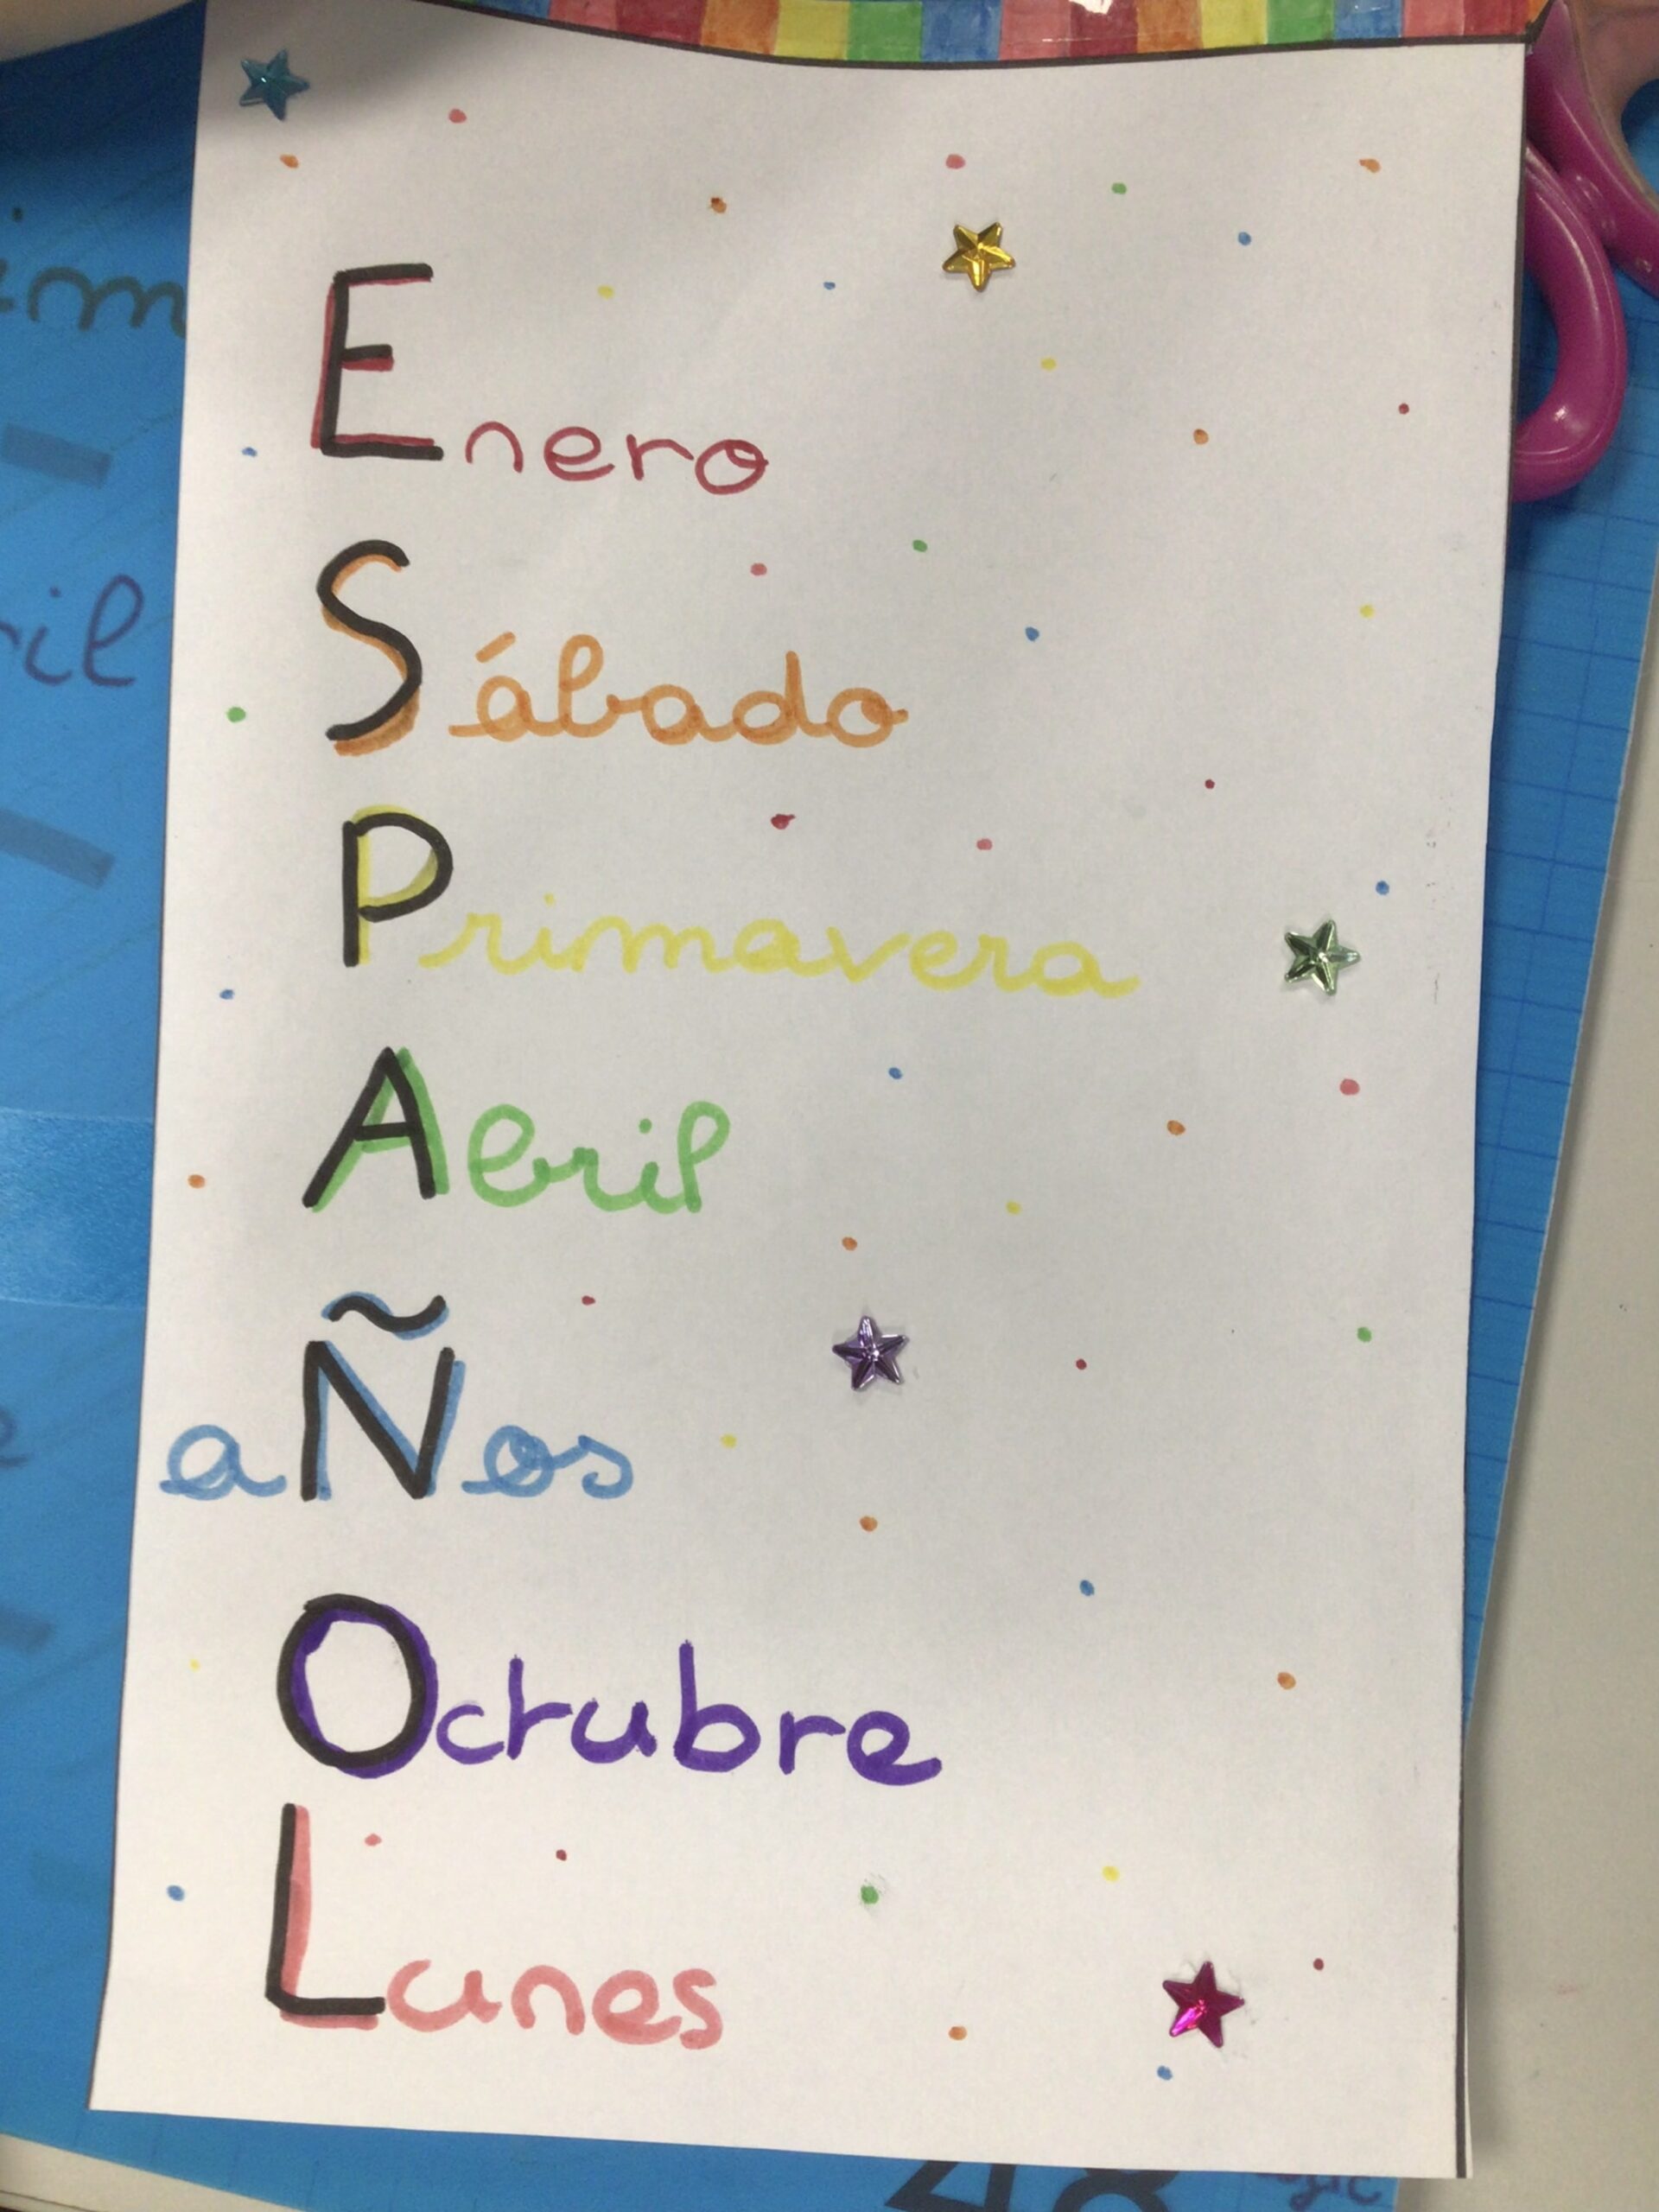 Enero
Sábado
Primavera
Abril
aÑos
Octubre
Lunes
48